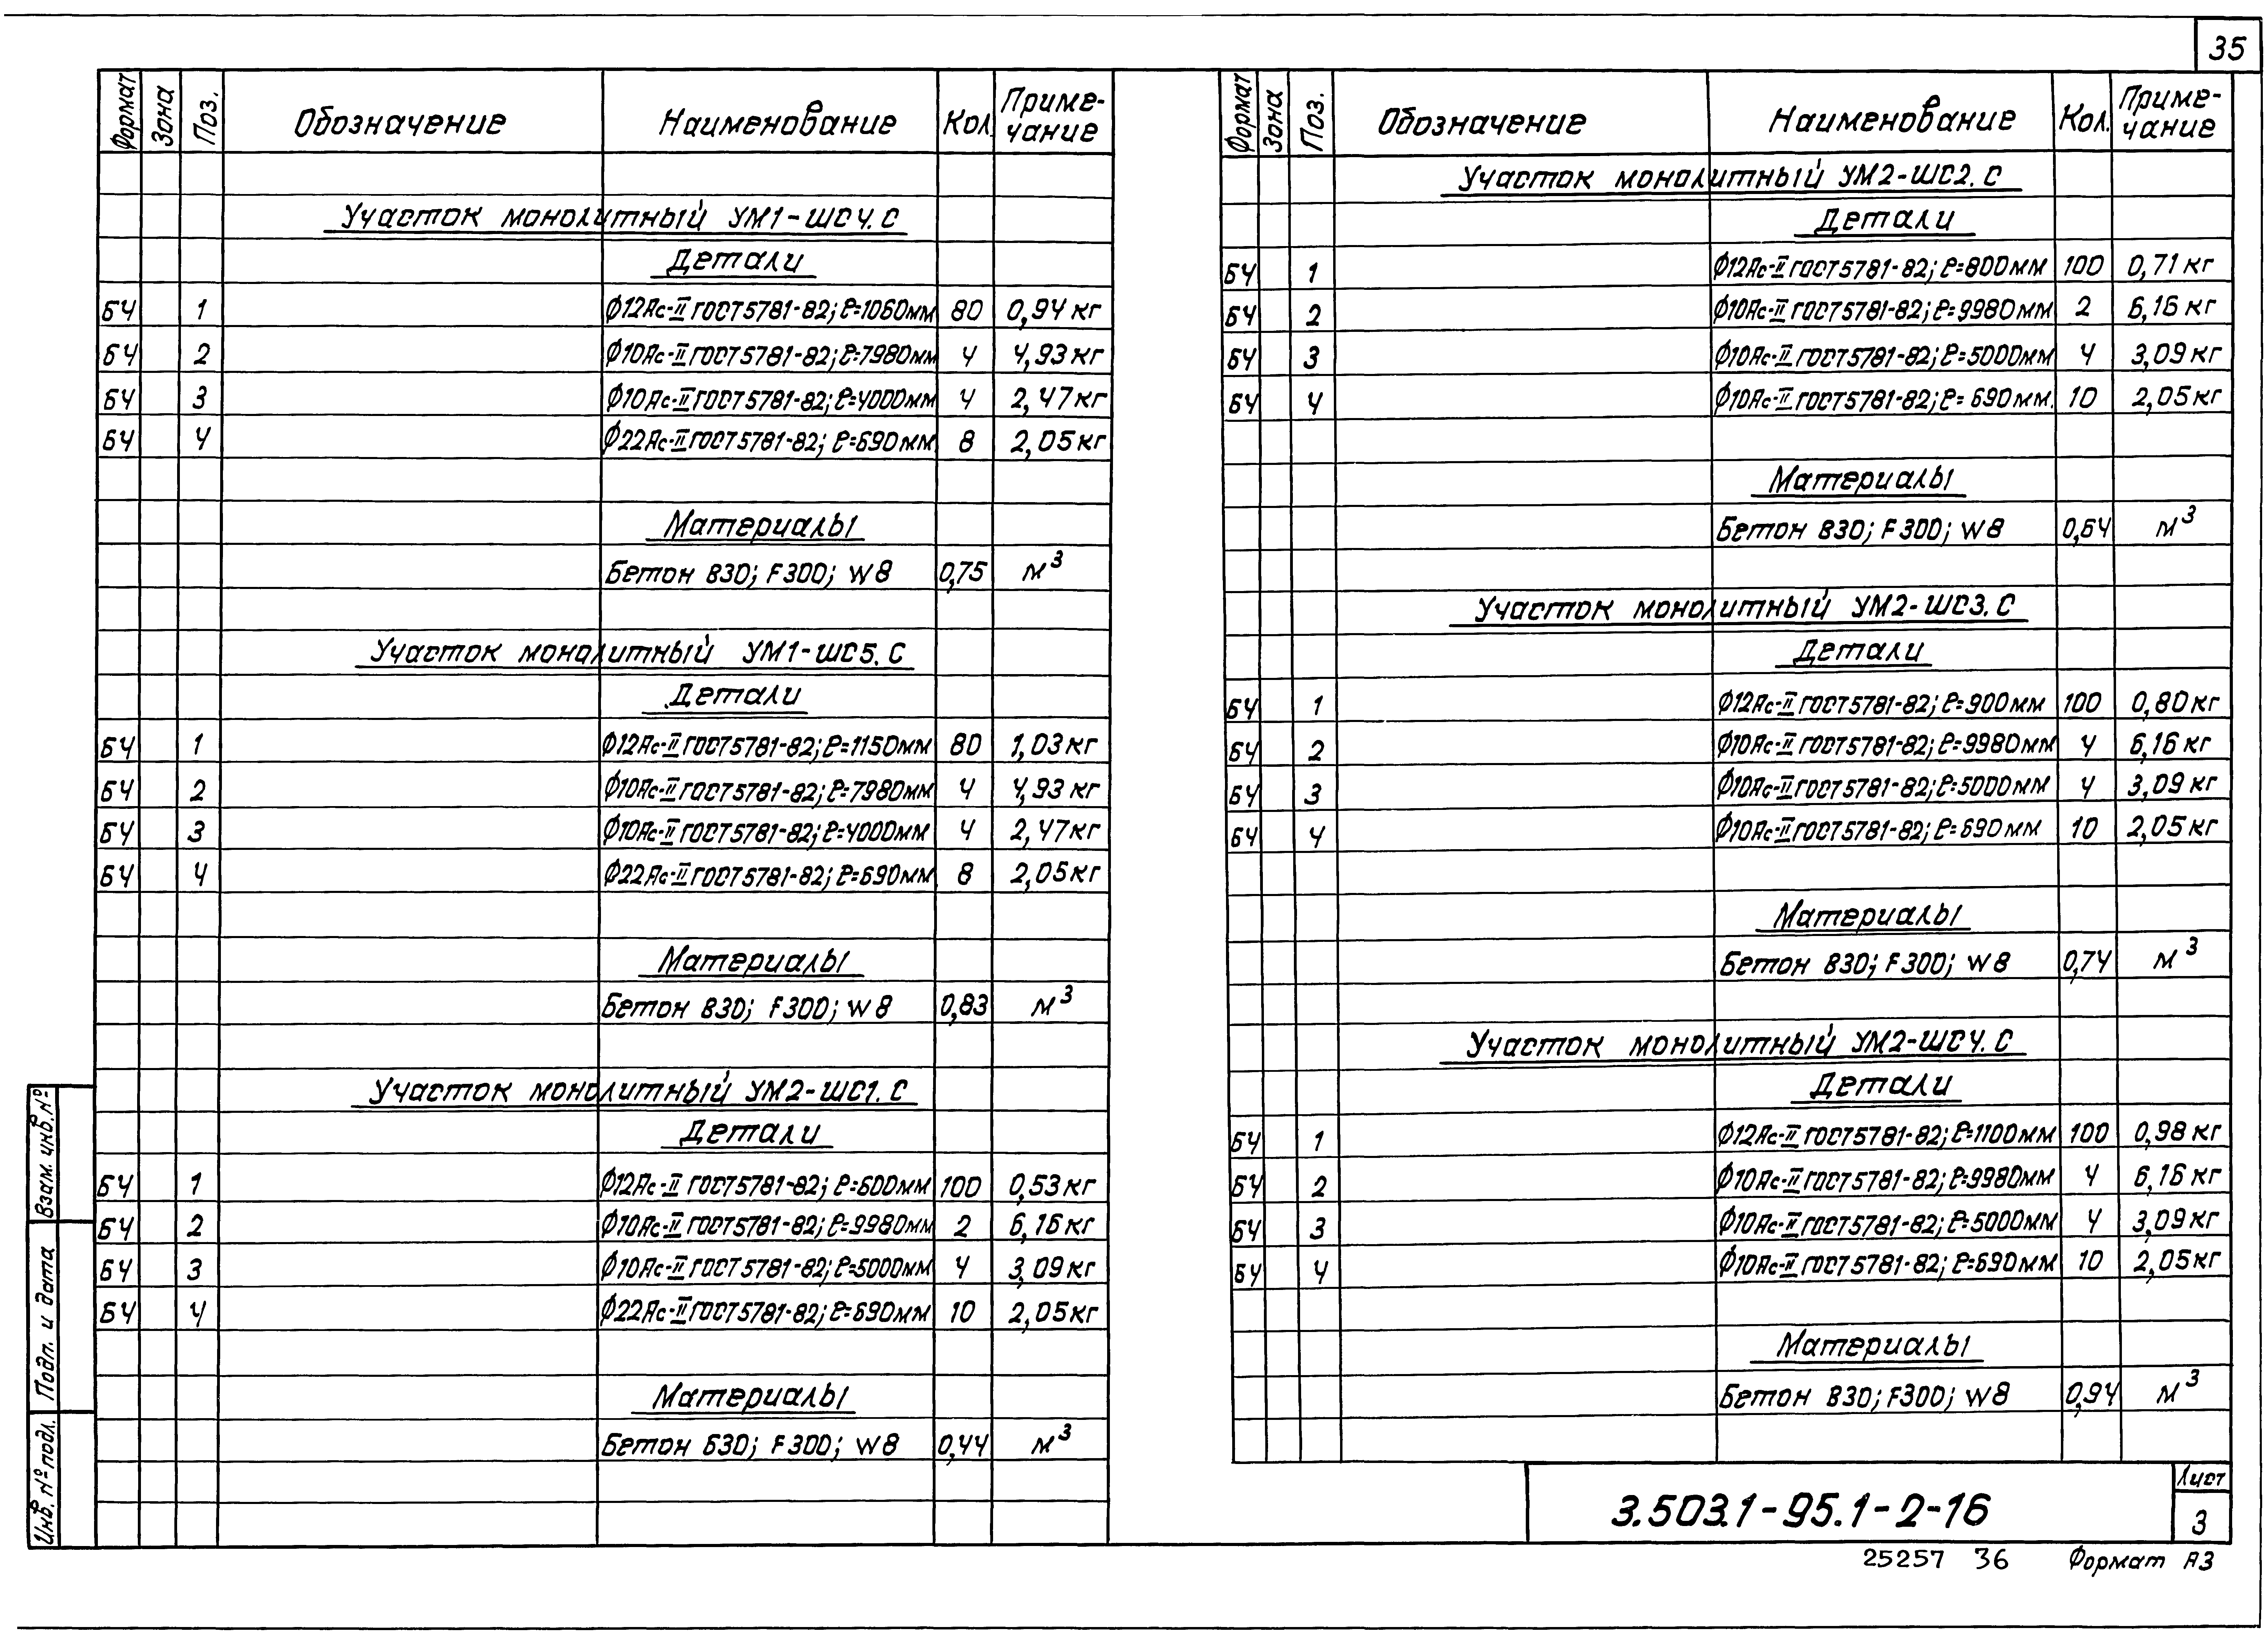 35
Формат Зона Поз. Обозначение Наименование Кол. Приме-чание
Участок монолитный УМ1-ШС4.С
Детали
БЧ 1 Ф12Ас-II ГОСТ 5781-82; ℓ=1060мм 80 0,94 кг
БЧ 2 Ф10Ас-II ГОСТ 5781-82; ℓ=7980мм 4 4,93 кг
БЧ 3 Ф10Ас-II ГОСТ 5781-82; ℓ=4000мм 4 2,47 кг
БЧ 4 Ф22Ас-II ГОСТ 5781-82; ℓ=690мм 8 2,05 кг
Материалы
Бетон В30; F300; W8 0,75 м³
Участок монолитный УМ1-ШС5.С
Детали
БЧ 1 Ф12Ас-II ГОСТ 5781-82; ℓ=1150мм 80 1,03 кг
БЧ 2 Ф10Ас-II ГОСТ 5781-82; ℓ=7980мм 4 4,93 кг
БЧ 3 Ф10Ас-II ГОСТ 5781-82; ℓ=4000мм 4 2,47 кг
БЧ 4 Ф22Ас-II ГОСТ 5781-82; ℓ=690мм 8 2,05 кг
Материалы
Бетон В30; F300; W8 0,83 м³
Участок монолитный УМ2-ШС1.С
Детали
БЧ 1 Ф12Ас-II ГОСТ 5781-82; ℓ=600мм 100 0,53 кг
БЧ 2 Ф10Ас-II ГОСТ 5781-82; ℓ=9980мм 2 6,16 кг
БЧ 3 Ф10Ас-II ГОСТ 5781-82; ℓ=5000мм 4 3,09 кг
БЧ 4 Ф22Ас-II ГОСТ 5781-82; ℓ=690мм 10 2,05 кг
Материалы
Бетон Б30; F300; W8 0,44 м³
Формат Зона Поз. Обозначение Наименование Кол. Приме-чание
Участок монолитный УМ2-ШС2.С
Детали
БЧ 1 Ф12Ас-II ГОСТ 5781-82; ℓ=800мм 100 0,71 кг
БЧ 2 Ф10Ас-II ГОСТ 5781-82; ℓ=9980мм 2 6,16 кг
БЧ 3 Ф10Ас-II ГОСТ 5781-82; ℓ=5000мм 4 3,09 кг
БЧ 4 Ф10Ас-II ГОСТ 5781-82; ℓ=690мм. 10 2,05 кг
Материалы
Бетон В30; F300; W8 0,64 м³
Участок монолитный УМ2-ШС3.С
Детали
БЧ 1 Ф12Ас-II ГОСТ 5781-82; ℓ=900мм 100 0,80 кг
БЧ 2 Ф10Ас-II ГОСТ 5781-82; ℓ=9980мм 4 6,16 кг
БЧ 3 Ф10Ас-II ГОСТ 5781-82; ℓ=5000мм 4 3,09 кг
БЧ 4 Ф10Ас-II ГОСТ 5781-82; ℓ=690мм 10 2,05 кг
Материалы
Бетон В30; F300; W8 0,74 м³
Участок монолитный УМ2-ШС4.С
Детали
БЧ 1 Ф12Ас-II ГОСТ 5781-82; ℓ=1100мм 100 0,98 кг
БЧ 2 Ф10Ас-II ГОСТ 5781-82; ℓ=9980мм 4 6,16 кг
БЧ 3 Ф10Ас-II ГОСТ 5781-82; ℓ=5000мм 4 3,09 кг
БЧ 4 Ф10Ас-II ГОСТ 5781-82; ℓ=690мм 10 2,05 кг
Материалы
Бетон В30; F300; W8 0,94 м³
Взам. инв. №
Подп. и дата
Инв. № подл.
3.503.1-95.1-2-16
Лист
3
25257 36 Формат А3